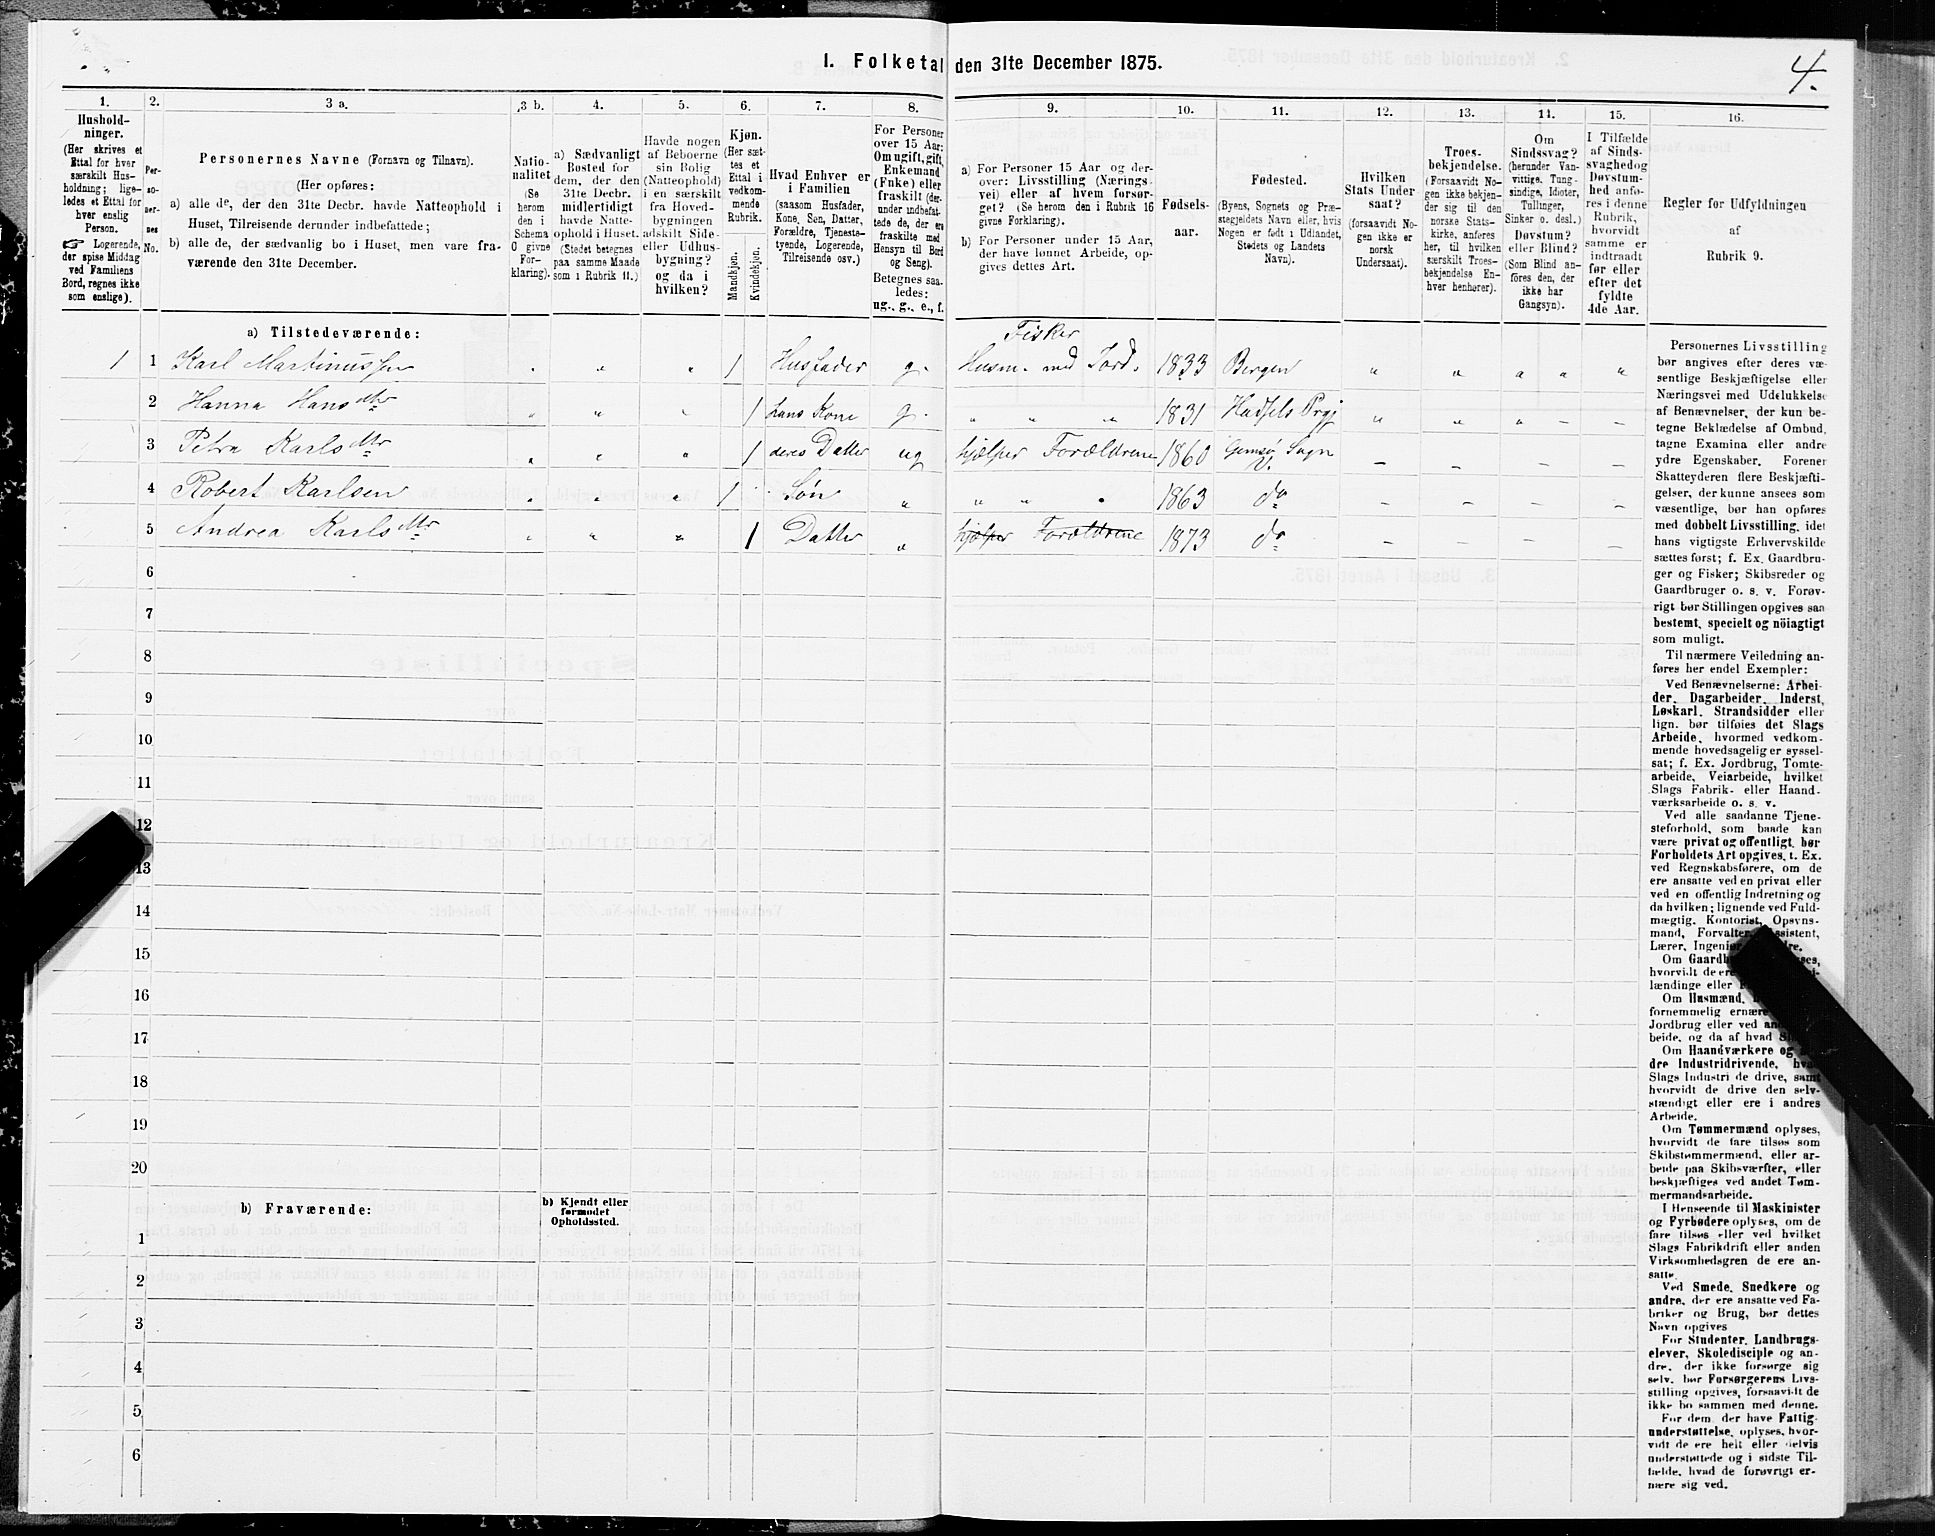 I. Folketal den 31te December 1875.
4.
1.
Hushold-
ninger.
(Her skrives et
Ettal for hver
særskilt Hus-
holdning; lige-
ledes et Ettal for
hver enslig
Person.
☞ Logerende,
der spise Middag
ved Familiens
Bord, regnes ikke
som enslige).
2.
Per-
so-
ner-
nes
No.
3 a.
Personernes Navne (Fornavn og Tilnavn).
(Her opføres:
a) alle de, der den 31te Decbr. havde Natteophold i
Huset, Tilreisende derunder indbefattede;
b) alle de, der sædvanlig bo i Huset, men vare fra-
værende den 31te December.
3 b.
Natio-
nalitet
(Se
herom
den i
Schema
O givne
For-
klaring).
4.
a) Sædvanligt
Bosted for
dem, der den
31te Decbr.
midlertidigt
havde Natte-
ophold i Huset.
(Stedet betegnes
paa samme Maade
som i Rubrik 11.)
5.
Havde nogen
af Beboerne
sin Bolig
(Natteophold)
i en særskilt
fra Hoved-
bygningen
adskilt Side-
eller Udhus-
bygning?
og da i
hvilken?
6.
Kjøn.
(Her sæt-
tes et
Ettal i
vedkom-
mende
Rubrik.
Mandkjøn.
Kvindekjøn.
7.
Hvad Enhver er
i Familien
(saasom Husfader,
Kone, Søn, Datter,
Forældre, Tjeneste-
tyende, Logerende,
Tilreisende osv.)
8.
For Personer
over 15 Aar:
Om ugift, gift,
Enkemand
(Enke) eller
fraskilt (der-
under indbefat-
tede de, der ere
fraskilte med
Hensyn til Bord
og Seng).
Betegnes saa-
ledes:
ug., g., e., f.
9.
a) For Personer 15 Aar og der-
over: Livsstilling (Nærings-
vei) eller af hvem forsør-
get? (Se herom den i Rubrik 16
givne Forklaring).
b) For Personer under 15 Aar,
der have lønnet Arbeide, op-
gives dettes Art.
10.
Fødsels-
aar.
11.
Fødested.
(Byens, Sognets og Præ-
stegjeldets Navn eller, hvis
Nogen er født i Udlandet,
Stedets og Landets
Navn).
12.
Hvilken
Stats Under-
saat?
(forsaavidt No-
gen ikke er
norsk
Undersaat).
13.
Troes-
bekjendelse.
(Forsaavidt No-
gen ikke bekjen-
der sig til den
norske Stats-
kirke, anføres
her, til hvilken
særskilt Troes-
bekjendelse En-
hver henhører).
14.
Om
Sindssvag?
(herunder Van-
vittige, Tung-
sindige, Idioter,
Tullinger,
Sinker o. desl.)
Døvstum?
eller Blind?
(Som Blind an-
føres den, der
ikke har
Gangsyn).
15.
I Tilfælde
af Sinds-
svaghed og
Døvstum-
hed anfø-
res i denne
Rubrik,
hvorvidt
samme er
indtraadt
før eller
efter det
fyldte
4de Aar.
16.
Regler for Udfyldningen
af
Rubrik 9.
a) Tilstedeværende:
Fisker
1 1 Karl Martinussen " " " 1 Husfader g. Husm. med Jord. 1833 Bergen " " " " "
2 Hanna Hansdtr " " " 1 hans Kone g. " " " 1831 Hadsels Prgj " " " – –
3 Petra Karlsdtr " " " 1 deres Datter ug hjælper Forældrene 1860 Gimsø Sogn – – – – –
4 Robert Karlsen " " " 1 Søn " " " " 1863 do – – – – –
5 Andrea Karlsdtr " " " 1 Datter " hjælper Forældrene 1873 do – – – – –
6
7
8
9
10
11
12
13
14
15
16
17
18
19
20
b) Fraværende:
b) Kjendt eller
formodet
Opholdssted.
1
2
3
4
5
6
Personernes Livsstilling
bør angives efter deres væ-
sentlige Beskjæftigelse eller
Næringsvei med Udelukkelse
af Benævnelser, der kun be-
tegne Beklædelse af Ombud,
tagne Examina eller andre
ydre Egenskaber. Forener
Skatteyderen flere Beskjæfti-
gelser, der kunne ansees som
væsentlige, bør han opføres
med dobbelt Livsstilling, idet
hans vigtigste Erhvervskilde
sættes først; f. Ex. Gaardbru-
ger og Fisker; Skibsreder og
Gaardbruger o. s. v. Forøv-
rigt bør Stillingen opgives saa
bestemt, specielt og nöiagtigt
som muligt.
Til nærmere Veiledning an-
føres her endel Exempler:
Ved Benævnelserne: Arbei-
der, Dagarbeider, Inderst,
Løskarl, Strandsidder eller
lign. bør tilføies det Slags
Arbeide, hvormed vedkom-
mende hovedsagelig er syssel-
sat; f. Ex. Jordbrug, Tomte-
arbeide, Veiarbeide, hvilket
Slags Fabrik- eller Haand-
værksarbeide o. s. v.
Ved alle saadanne Tjene-
steforhold, som baade kan
være privat og offentligt, bør
Forholdets Art opgives, t. Ex.
ved Regnskabsførere, om de
ere ansatte ved en privat eller
ved en offentlig Indretning og
da hvilken; lignende ved Fuld-
mægtig, Kontorist, Opsyns-
mand, Forvalter, Assistent,
Lærer, Ingeniør
Om
hvorvidt de ere
lændinge eller
Om Husmænd,
fornemmelig ernære
Jordbrug eller ved
beide, og da af hvad
Om Haandværkere og
dre Industridrivende,
Slags Industri de drive, samt
hvorvidt de drive den selv-
stændigt eller ere i andres
Arbeide.
Om Tømmermænd oplyses,
hvorvidt de fare tilsøs som
Skibstømmermænd, eller ar-
beide paa Skibsværfter, eller
beskjæftiges ved andet Tøm-
mermandsarbeide.
I Henseende til Maskinister
og Fyrbødere oplyses, om de
fare tilsøs eller ved hvilket
Slags Fabrikdrift eller anden
Virksomhedsgren de ere an-
satte.
Ved Smede, Snedkere og
andre, der ere ansatte ved Fa-
briker og Brug, bør dettes
Navn opgives
For Studenter, Landbrugs-
elever, Skoledisciple og an-
dre, der ikke forsørge sig
selv, bør Forsørgerens Livs-
stilling opgives, forsaavidt de
ikke bo sammen med denne.
For dem, der have Fattig-
understøttelse, oplyses, hvor-
vidt de ere helt eller delvis
understøttede og i sidste Til-
fælde, hvad de forøvrigt er-
nære sig ved.